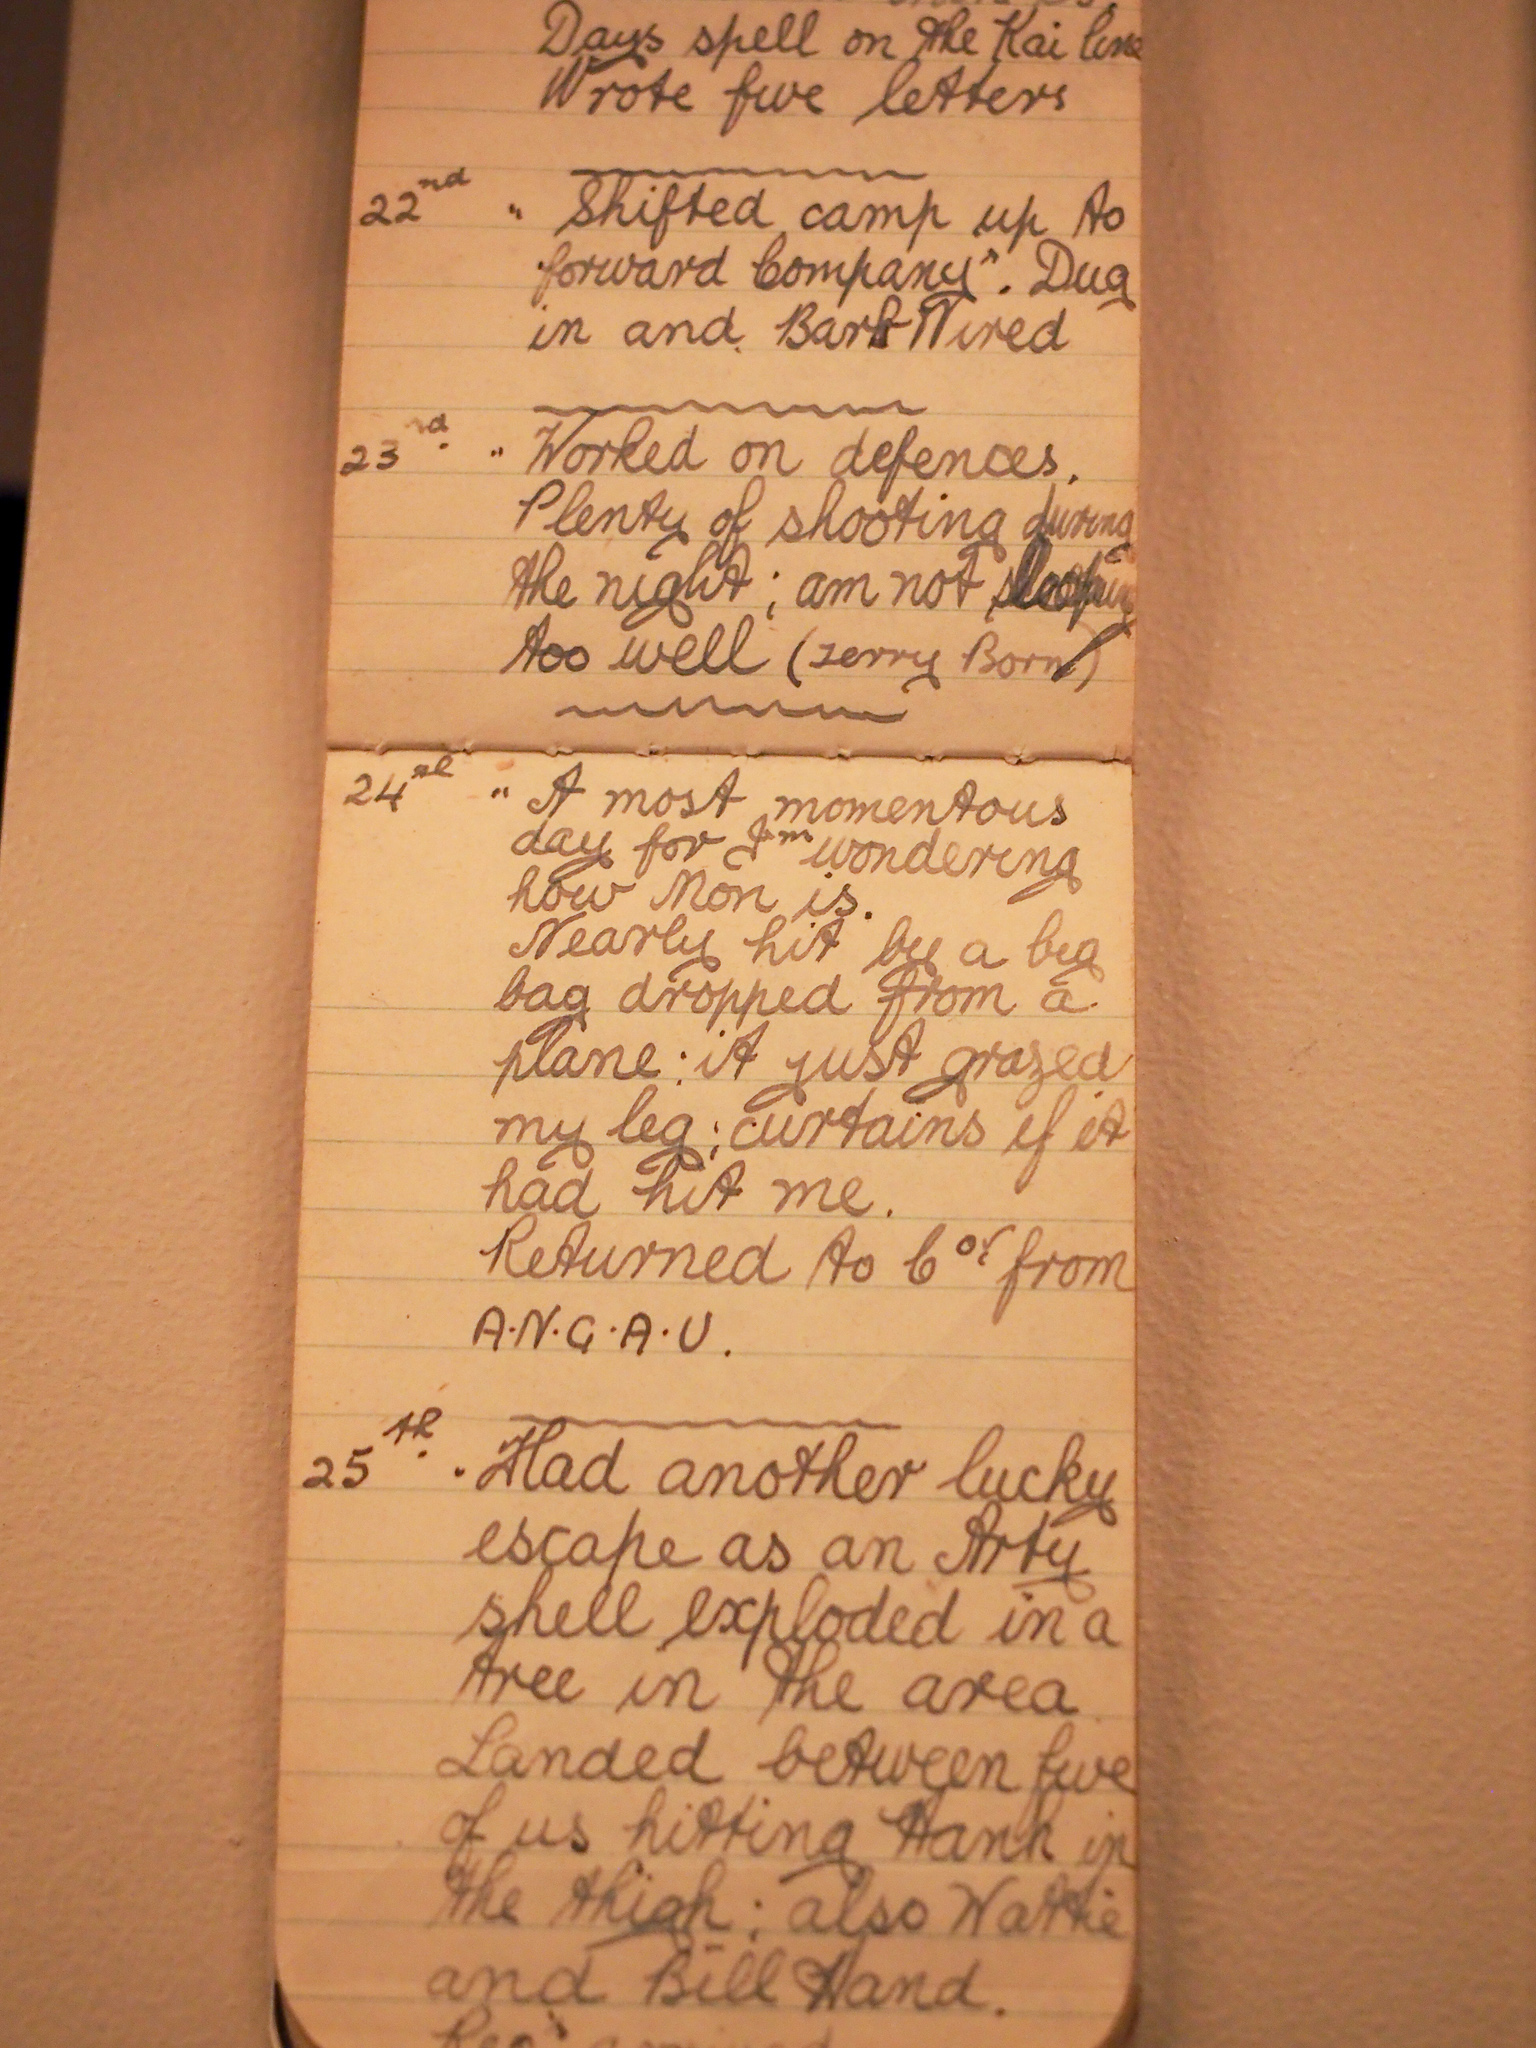 Days spell on the Kai line
Wrote five letters
22nd " Shifted camp up to
forward Company". Dug
in and Barb Wired
23rd. " Worked on defences.
Plenty of shooting during
the night; am not sleeping
too well (Terry Born)
24nd " A most momentous
day for I'm wondering
how Mon is.
Nearly hit by a big
bag dropped from a
plane: it just grazed
my leg; curtains if it
had hit me.
Returned to Coy from
A.N.G.A.U.
25th. " Had another lucky
escape as an Arty
shell exploded in a
tree in the area
Landed between five
of us hitting Hank in
the thigh; also Wattie
and Bill Hand.